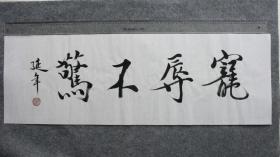 寵辱不驚
延年